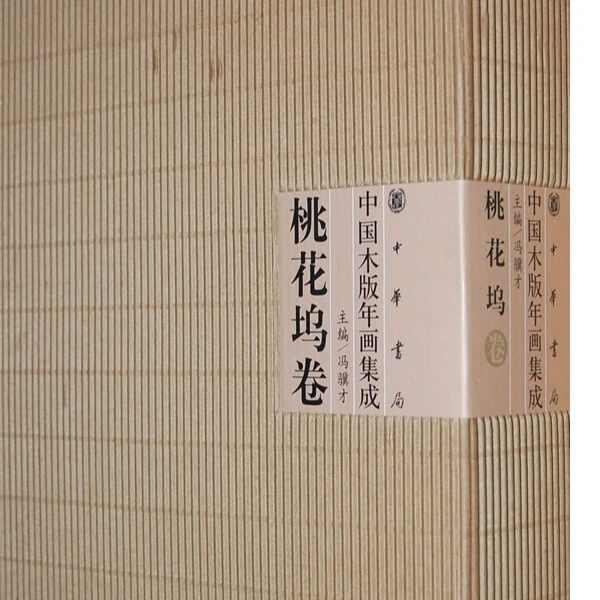 中华书局
中国木版年画集成
主编/冯骥才
桃花坞卷
中华书局
中国木版年画集成
主编/冯骥才
桃花坞卷